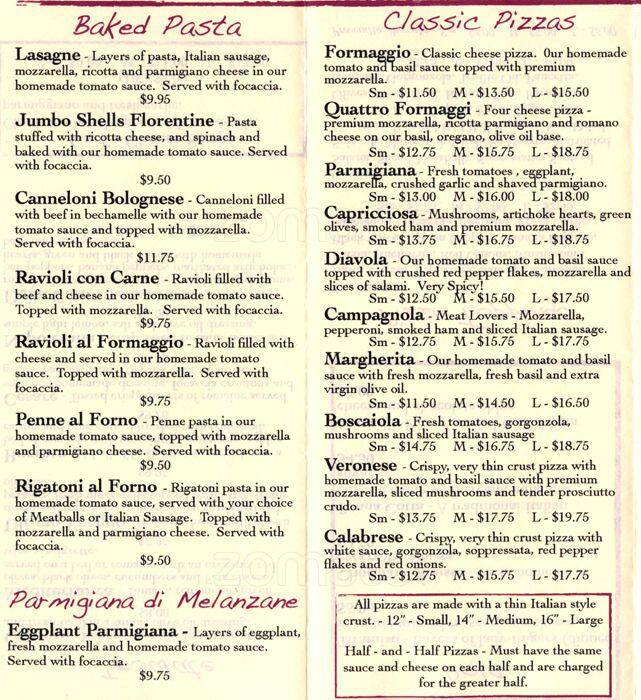 Baked Pasta
Lasagne - Layers of pasta, Italian sausage,
mozzarella, ricotta and parmigiano cheese in our
homemade tomato sauce. Served with focaccia.
$9.95
Jumbo Shells Florentine - Pasta
stuffed with ricotta cheese, and spinach and
baked with our homemade tomato sauce. Served
with focaccia.
$9.50
Canneloni Bolognese - Canneloni filled
with beef in bechamelle with our homemade
tomato sauce and topped with mozzarella.
Served with focaccia.
$11.75
Ravioli con Carne - Ravioli filled with
beef and cheese in our homemade tomato sauce.
Topped with mozzarella. Served with focaccia.
$9.75
Ravioli al Formaggio - Ravioli filled with
cheese and served in our homemade tomato
sauce. Topped with mozzarella. Served with
focaccia.
$9.75
Penne al Forno - Penne pasta in our
homemade tomato sauce, topped with mozzarella
and parmigiano cheese. Served with focaccia.
$9.50
Rigatoni al Forno - Rigatoni pasta in our
homemade tomato sauce, served with your choice
of Meatballs or Italian Sausage. Topped with
mozzarella and parmigiano cheese. Served with
focaccia.
$9.50
Parmigiana di Melanzane
Eggplant Parmigiana - Layers of eggplant,
fresh mozzarella and homemade tomato sauce.
Served with focaccia.
$9.75
Classic Pizzas
Formaggio - Classic cheese pizza. Our homemade
tomato and basil sauce topped with premium
mozzarella.
Sm - $11.50 M - $13.50 L - $15.50
Quattro Formaggi - Four cheese pizza -
premium mozzarella, ricotta parmigiano and romano
cheese on our basil, oregano, olive oil base.
Sm - $12.75 M - $15.75 L - $18.75
Parmigiana - Fresh tomatoes , eggplant,
mozzarella, crushed garlic and shaved parmigiano.
Sm - $13.00 M - $16.00 L - $18.00
Capricciosa - Mushrooms, artichoke hearts, green
olives, smoked ham and premium mozzarella.
Sm - $13.75 M - $16.75 L - $18.75
Diavola - Our homemade tomato and basil sauce
topped with crushed red pepper flakes, mozzarella and
slices of salami. Very Spicy!
Sm - $12.50 M - $15.50 L - $17.50
Campagnola - Meat Lovers - Mozzarella,
pepperoni, smoked ham and sliced Italian sausage.
Sm - $12.75 M - $15.75 L - $17.75
Margherita - Our homemade tomato and basil
sauce with fresh mozzarella, fresh basil and extra
virgin olive oil.
Sm - $11.50 M - $14.50 L - $16.50
Boscaiola - Fresh tomatoes, gorgonzola,
mushrooms and sliced Italian sausage
Sm - $14.75 M - $16.75 L - $18.75
Veronese - Crispy, very thin crust pizza with
homemade tomato and basil sauce with premium
mozzarella, sliced mushrooms and tender prosciutto
crudo.
Sm - $13.75 M - $17.75 L - $19.75
Calabrese - Crispy, very thin crust pizza with
white sauce, gorgonzola, soppressata, red pepper
flakes and red onions.
Sm - $12.75 M - $15.75 L - $17.75
All pizzas are made with a thin Italian style
crust. - 12" - Small, 14" - Medium, 16" - Large
Half - and - Half Pizzas - Must have the same
sauce and cheese on each half and are charged
for the greater half.